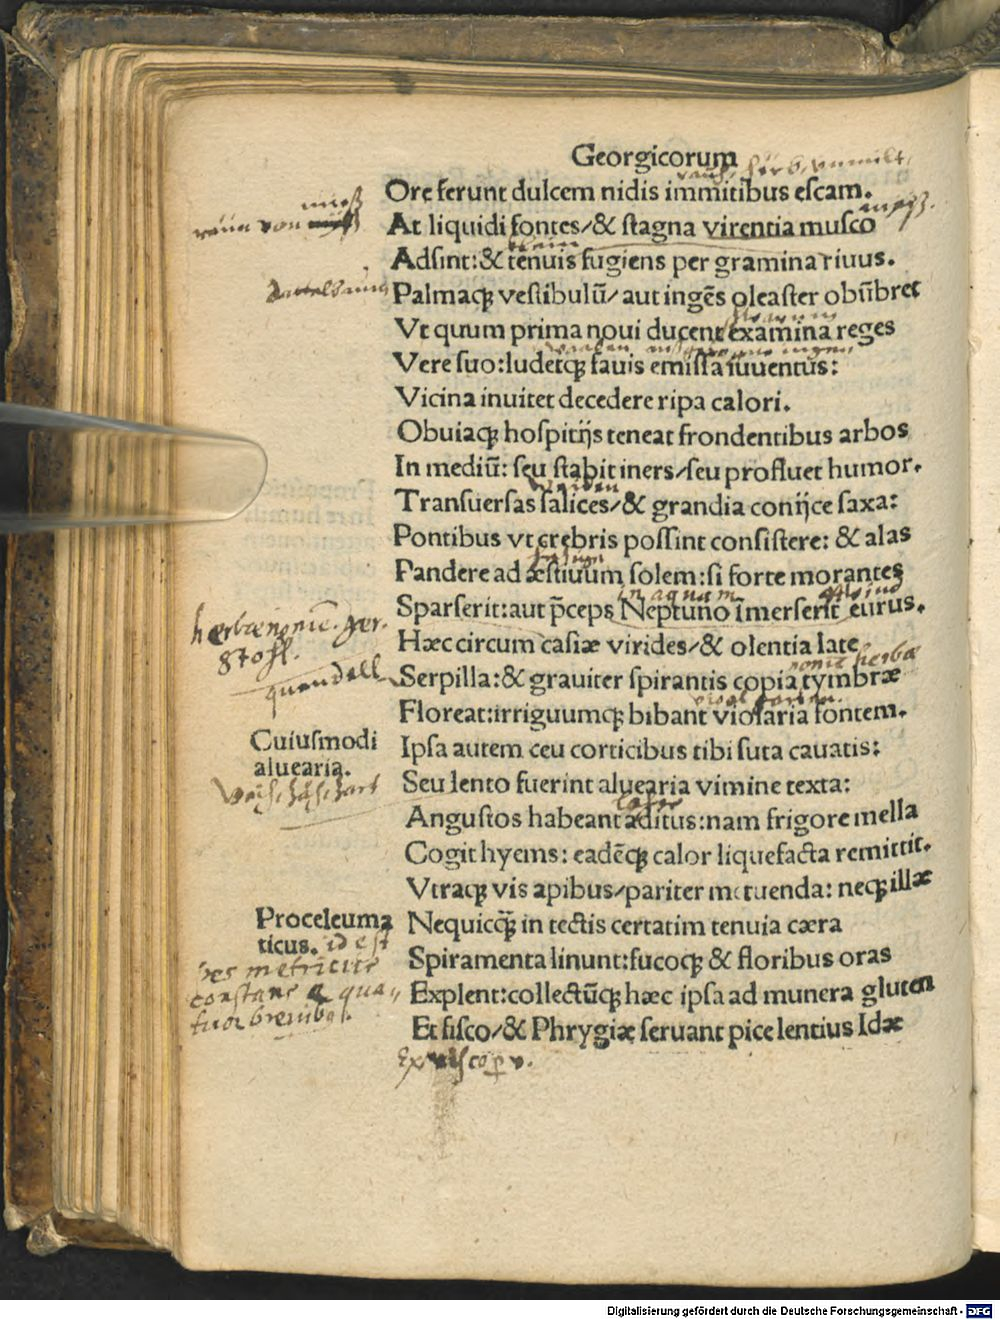 Georgicorum
Ore ferunt dulcem nidis immitibus escam.
At liquidi fontes/& stagna virentia musco
Adsint:& tenuis fugiens per gramina riuus.
Palmaq; vestibulū/aut ingēs oleaster obūbret
Vt quum prima noui ducent examina reges
Vere suo:ludetq; fauis emissa iuuentus:
Vicina inuitet decedere ripa calori.
Obuiaq; hospitijs teneat frondentibus arbos
In mediū: seu stabit iners/seu profluet humor.
Transuersas salices/& grandia conijce saxa:
Pontibus vt crebris possint consistere: & alas
Pandere ad æstiuum solem:si forte morantes
in aquam
Sparserit:aut p̄ceps Neptuno īmerserit eurus.
Hæc circum casiæ virides/& olentia late
quendell
Serpilla:& grauiter spirantis copia tymbræ
Floreat:irriguumq; bibant violaria fontem.
Cuiusmodi
aluearia.
Ipsa autem ceu corticibus tibi suta cauatis:
Seu lento fuerint aluearia vimine texta:
Angustos habeant aditus:nam frigore mella
Cogit hyems: eadēq; calor liquefacta remittit.
Vtraq; vis apibus/pariter metuenda: neq; illæ
Proceleuma
ticus. id est
pes metricus
constans
Nequicq̄; in tectis certatim tenuia cæra
Spiramenta linunt:fucoq; & floribus oras
Explent:collectūq; hæc ipsa ad munera gluten
Et fisco/& Phrygiæ seruant pice lentius Idæ
Digitalisierung gefördert durch die Deutsche Forschungsgemeinschaft - DFG